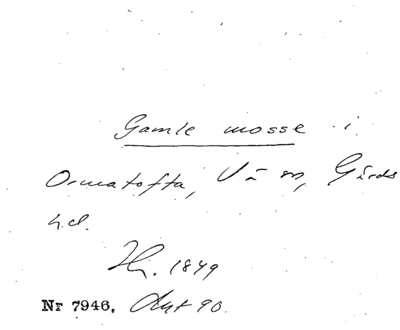 Gamle mosse i
Ormatofta, Vä sn, Gärds
h.d.
1849
Nr 7946. 90.